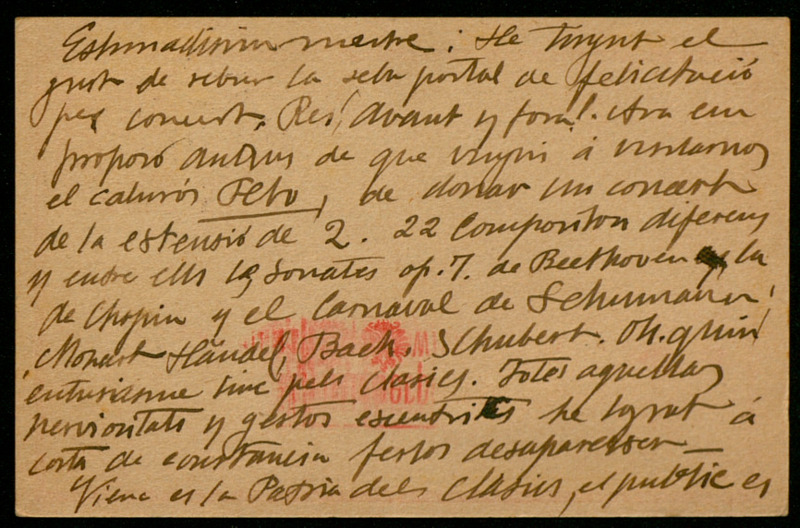 Estimadisim mestre: He tingut el
gust de rebrer la seba postal de felicitació
pel concert. Res, Avant y fora!. Ara em
proposo antes de que vingui á visitarnos
el calurós Febo, de donar un concert
de la estensió de 2. 22 Compositors diferens
y entre ells las Sonates op. 7. de Beethoven y la
de Chopin y el Carnaval de Schumann,
Mozart Händel, Bach, Schubert. Oh. quin
entusiasme tinc pels Clasics. Totes aquellas
nerviositats y gestos escentrics he lograt á
costa de constancia ferlos desapareixer
Viena es la Patria dels Clasics, el public es